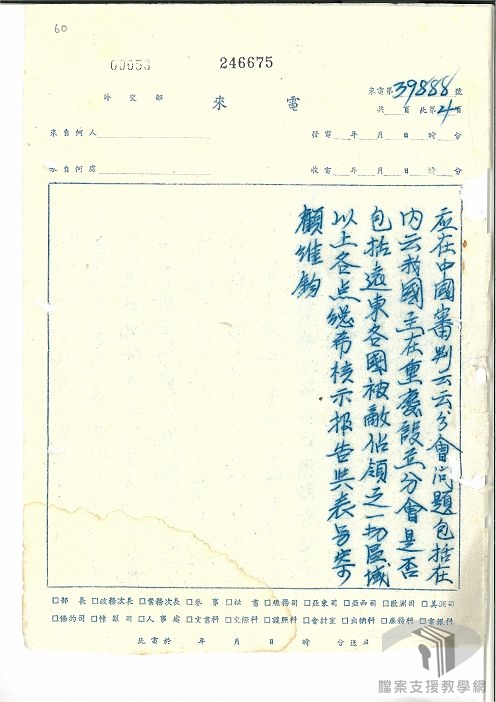 60
00053
246675
外交部
來電
來電第39888號
共 頁 此第4頁
來自何人
發電 年 月 日 時 分
來自何處
收電 年 月 日 時 分
應在中國審判云云分會問題包括在
內云我國主在重慶設立分會是否
包括遠東各國被敵佔領之一切區域
以上各点總希核示报告與表
顧維鈞
□部長□政務次長□常務次長□參事□秘書□總務司□亞東司□亞西司□歐洲司□美洲司
□條約司□情報司□人事處□文書科□交際科□護照科□會計室□出納科□庶務科□電報科
此電於 年 月 日 時 分送
檔案支援教學網